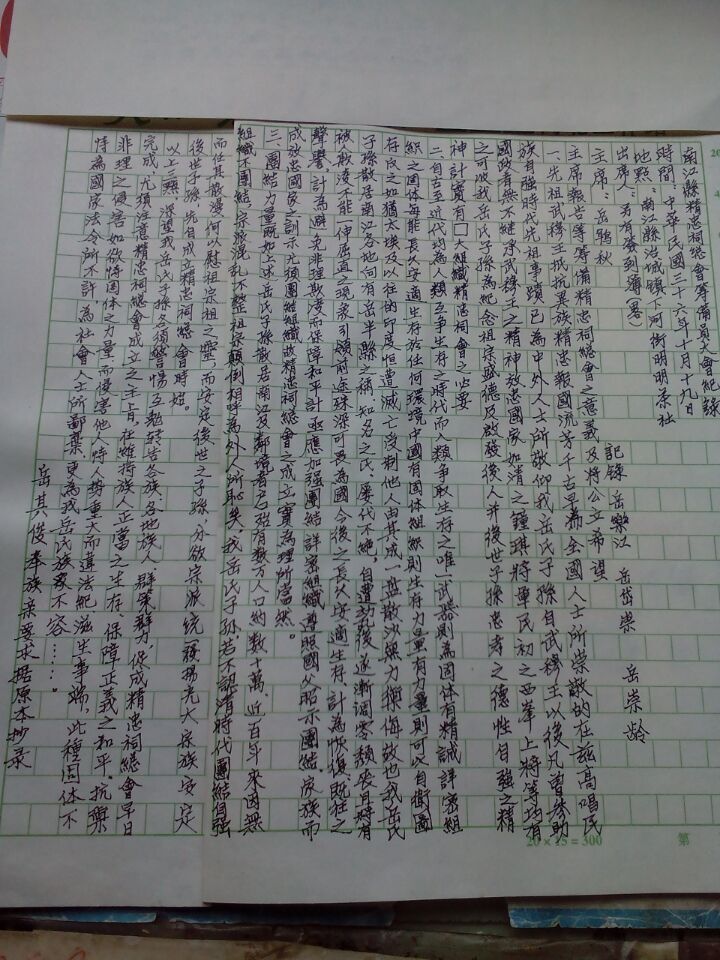 南江縣精忠祠總會筹備員大會紀錄
時間：中華民國三十六年十月十九日
地點：南江縣治城鎮下河街明明茶社
出席人：另有簽到簿(畧)
主席：岳鶚秋　記錄　岳樂江　岳岱崇　岳崇龄
主席報告筹備精忠祠總會之意義及将公立希望
一、先祖武穆王抵抗異族精忠報國流芳千古早為全國人士所崇敬的在茲高唱民
族自強時代先祖事蹟已為中外人士所敬仰我岳氏子孫自武穆王以後凡曾参助
國政者無不継承武穆王之精神效忠國家如清之鍾琪將軍民初之西峯上將等均有
之可收我岳氏子孫為紀念祖宗盛德及啟發後人并後世子孫忠孝之德性自強之精
神計實有□大組織精忠祠會之必要
二、自古至近代均為人類互争生存之時代而人類争取生存之唯一武器則為团体有精誠詳密組
織之团体每能長久安適生存於任何環境中國有团体組織則生存力量有力量則可以自衛图
存反之如猶太埃及以往的印度恒遭滅亡受制他人由其成一盤散沙無力禦侮故也我岳氏
子孫散居南江各地向有岳半縣之稱知名之氏屡代不絶，自遭乱後逐漸凋零頹丧且時有
被欺凌不能伸岳道之現象引領前途殊深可畏為國今後之長久安適生存計為恢復既往之
聲譽，計為避免非理欺凌而保障和平計亟應加强團結詳密組織遵照國父昭示團結家族而
成效忠國家之訓示尤須團結組織故精忠祠總會之成立實為理所當然。
三、團結力量既如上述岳氏子孫散居南江及鄰境者已號有数万人口約数十萬，近百年來因無
組織不團結，宗派混乱不整祖宗顛倒相呼為外人所恥笑，我岳氏子孫，若不認清時代團結自强
而任其散漫，何以慰祖宗之靈，而安定後世之子孫，亦欲宗派統設揚光大宗族安定
後世子孫，先自成立精忠祠總會時始。
以上三點深望我岳氏子孫各須警惕互勉转告各族、各地族人群策群力，促成精忠祠總會早日
完成，尤須注意精忠祠總會成立之主旨，在維持族人正當之生存，保障正義之和平。抗禦
非理之侵害如欲恃团体之力量而侵害他人恃人势重大而違法紀滋生事端，此種团体不
特為國家法令所不許，為社會人士所鄙棄，更為我岳氏族眾不容……。
岳其俊奉族眾要求据原本抄录
20×15=300
第